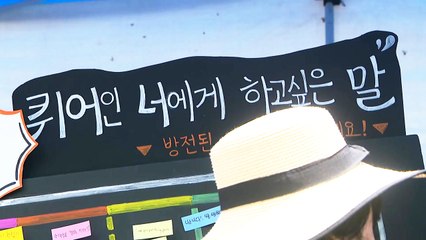 퀴어인 너에게 하고싶은 말
▼ 방전된 요! ▼